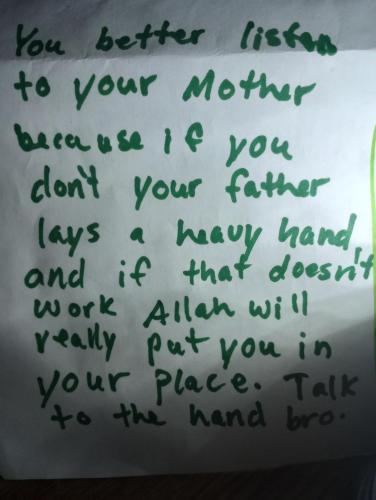 You better listen
to your Mother
because if you
don't your father
lays a heavy hand,
and if that doesn't
work Allah will
really put you in
your place. Talk
to the hand bro.